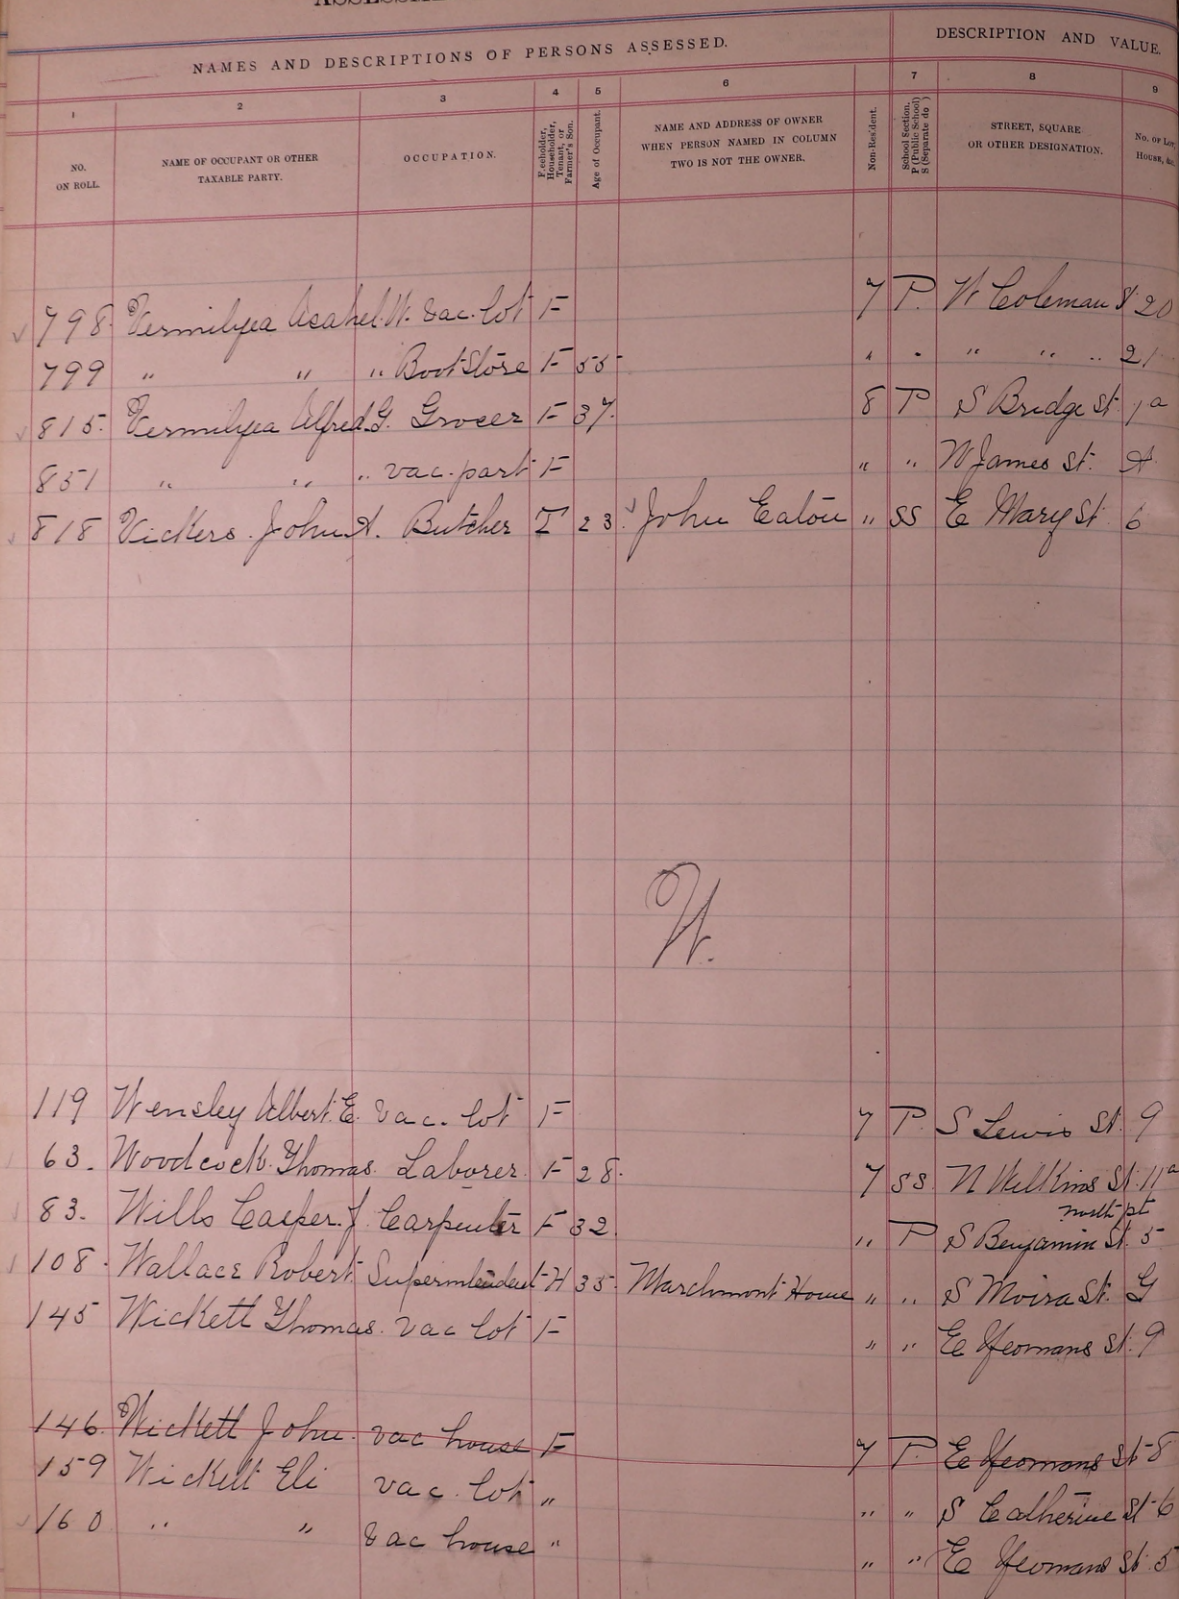 NAMES AND DESCRIPTIONS OF PERSONS ASSESSED. DESCRIPTION AND VALUE.
1 2 3 4 5 6 7 8 9
NO. ON ROLL. NAME OF OCCUPANT OR OTHER TAXABLE PARTY. OCCUPATION. Freeholder, Householder, Tenant, or Farmer's Son. Age of Occupant. NAME AND ADDRESS OF OWNER WHEN PERSON NAMED IN COLUMN TWO IS NOT THE OWNER. Non-Resident. School Section. P (Public School) S (Separate do ) STREET, SQUARE OR OTHER DESIGNATION. No. of Lot, House, &c.
798 Vermilyea Asahel W. Vac. lot F 7 P. W Coleman St 20
799 " " " Boot Store F 55 " " " " " 21
815. Vermilyea Alfred G. Grocer F 37. 8 P S Bridge St. 1a
851 " " " vac. part F " " N James St. A
818 Vickers John A. Butcher T 23. John Eaton " SS E Mary St 6
W.
119 Wensley Albert E. vac. lot F 7 P. S Lewis St. 9
63. Woodcock Thomas. Laborer F 28. 7 SS. N Wilkins St. 11a
north pt
83. Wills Casper J Carpenter F 32 " P S Benjamin St. 5
108. Wallace Robert Superintendent H 35. Marchmont Home " " S Moira St. G
145 Wickett Thomas. vac lot F " " E Yeomans St. 9
146. Wickett John. vac house F 7 P. E Yeomans St 8
159 Wickett Eli vac. lot " " " S Catherine St 6
160 " " vac house " " " E Yeomans St. 5